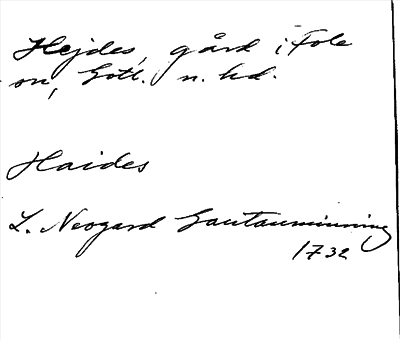 Hejdes, gård i Fole
sn, Gotl. n. hd.
Haides
L. Neogard Gautauminning
1732